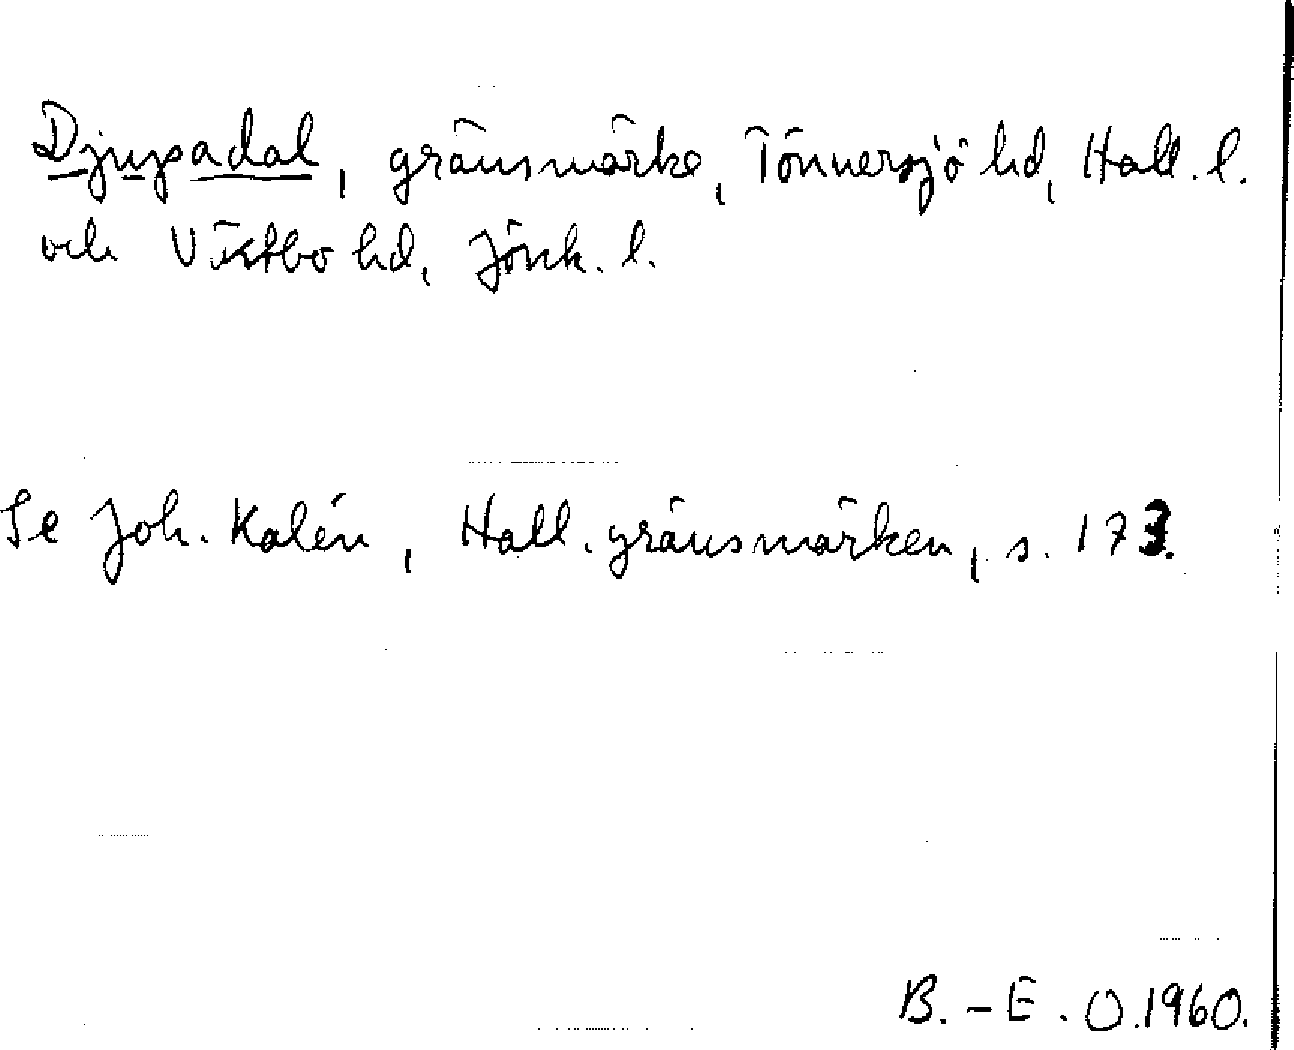 Djupadal, gränsmärke, Tönnersjö hd, Hall. l.
och Västbo hd, Jönk. l.
Se Joh. Kalén, Hall. gränsmärken, s. 173.
B.-E. O. 1960.